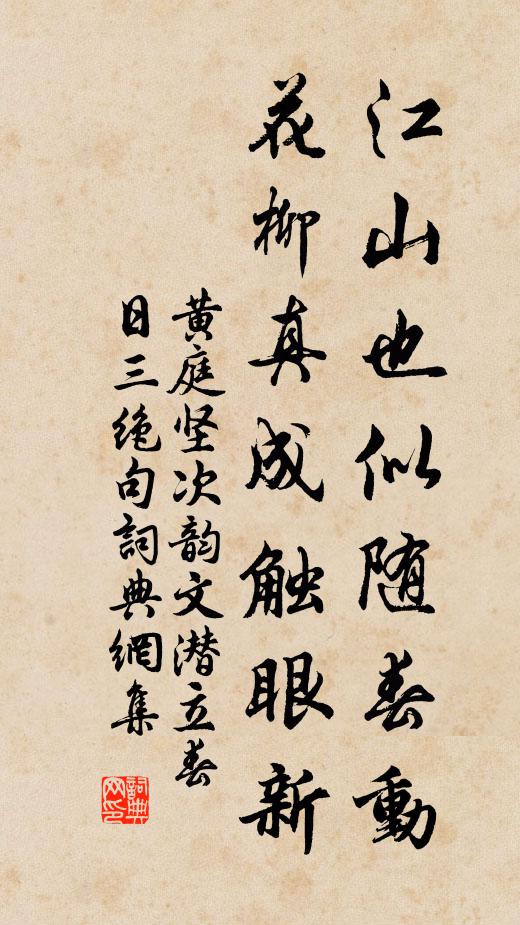 江山也似随春動
花柳真成触眼新
黄庭坚次韵文潜立春
日三绝句詞典網集
詞典网印